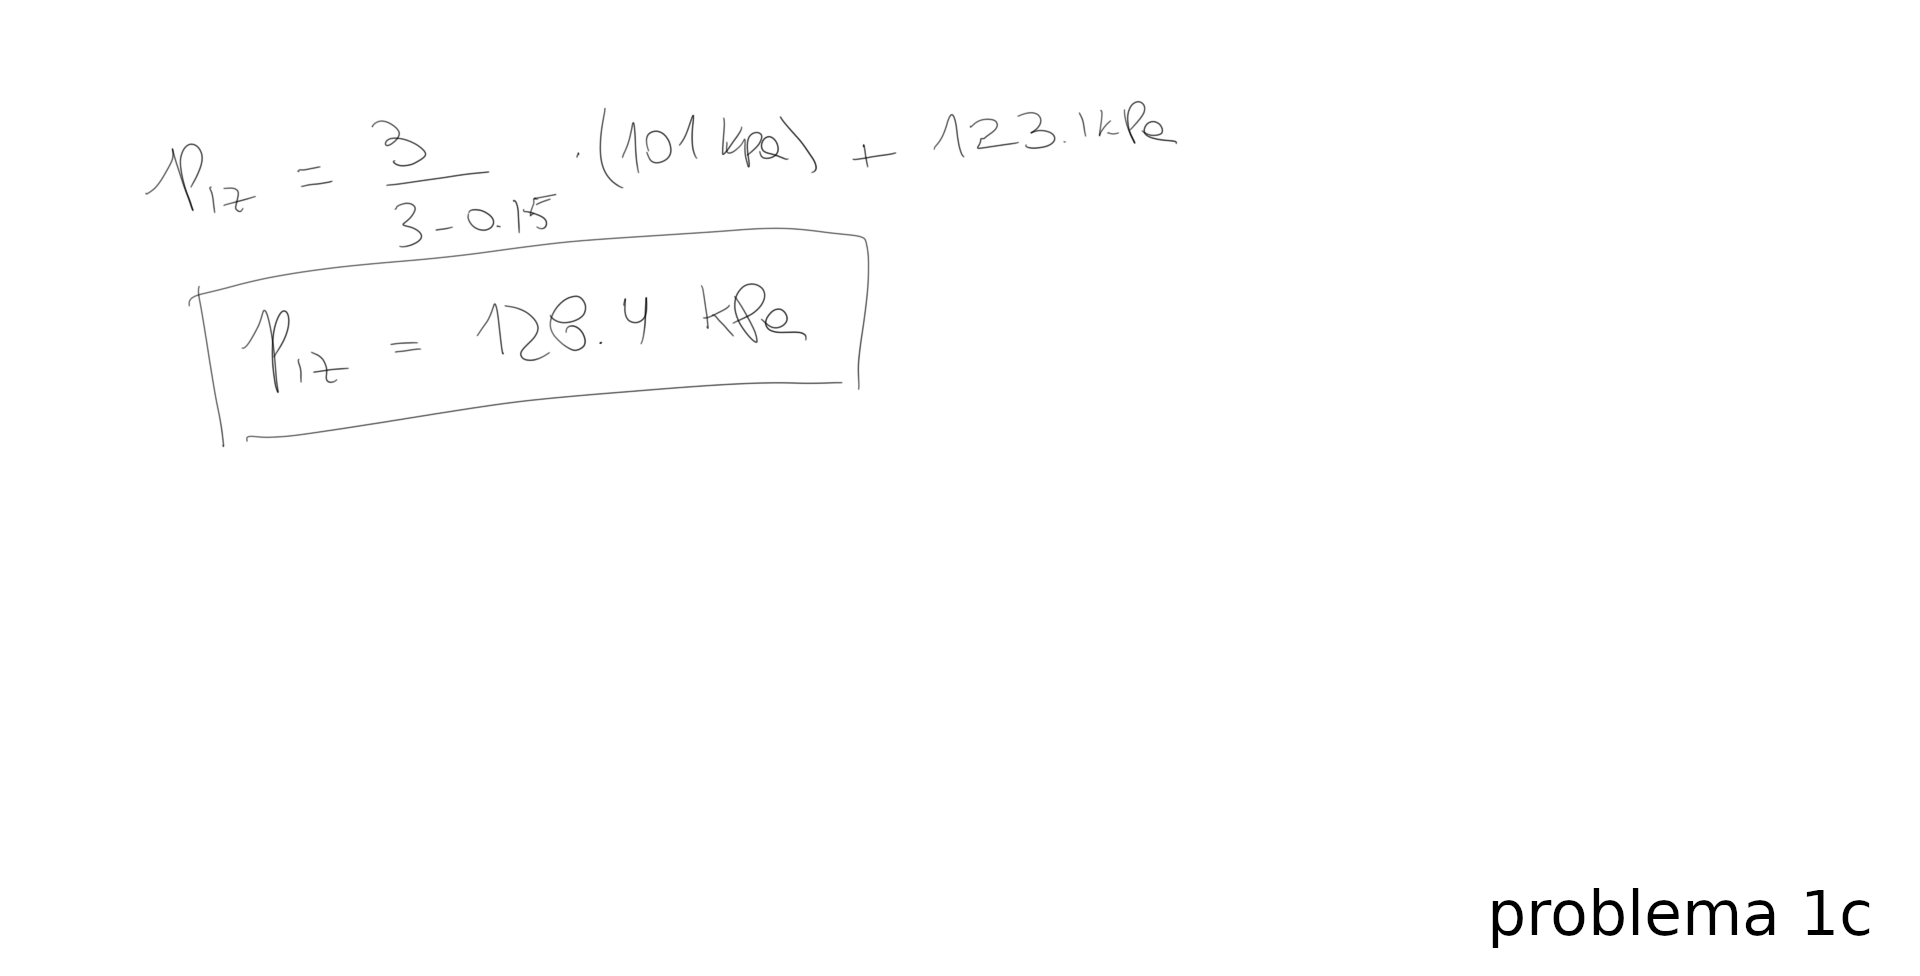 p_iz = 3 / (3 - 0.15) · (101 kPa) + 123.1 kPa
p_iz = 128.4 kPa
problema 1c